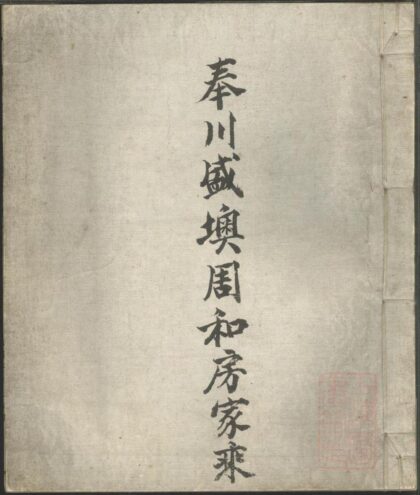 奉川盛墺周和房家乘